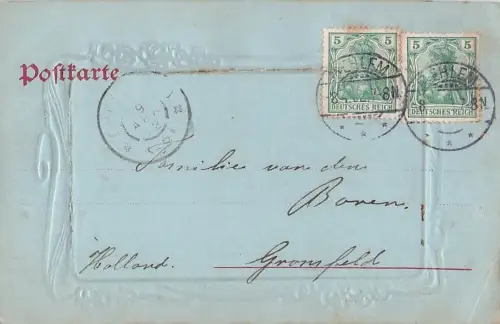 Postkarte
5 5 5 5
DEUTSCHES REICH DEUTSCHES REICH
8N 8N
Familie van den
Boren.
Holland. Gronsfeld